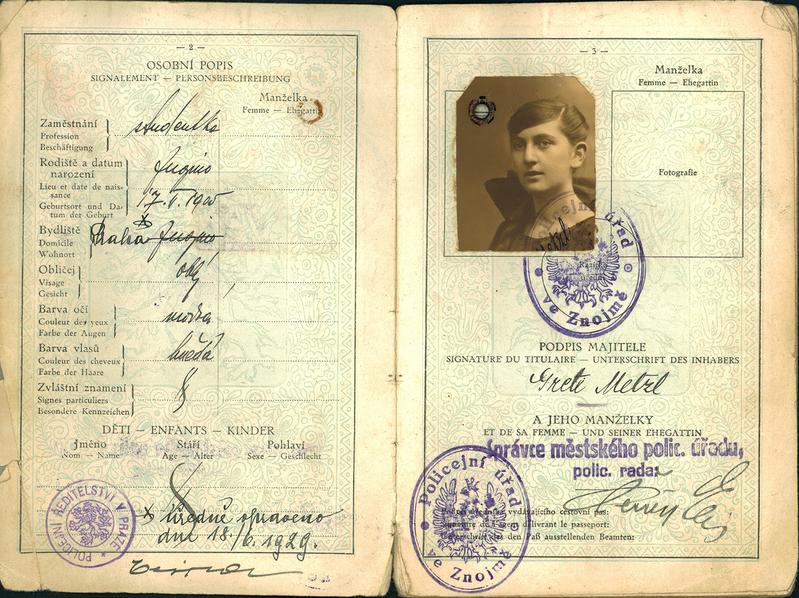 — 2 —
OSOBNÍ POPIS
SIGNALEMENT — PERSONSBESCHREIBUNG
Manželka
Femme — Ehegattin
Zaměstnání
Profession
Beschäftigung
studentka
Rodiště a datum
narození
Lieu et date de nais-
sance
Geburtsort und Da-
tum der Geburt
Znojmo
Bydliště
Domicile
Wohnort
Praha Znojmo
Obličej
Visage
Gesicht
oblý
Barva očí
Couleur des yeux
Farbe der Augen
modrá
Barva vlasů
Couleur des cheveux
Farbe der Haare
hnědá
Zvláštní znamení
Signes particuliers
Besondere Kennzeichen
DĚTI — ENFANTS — KINDER
Jméno Stáří Pohlaví
Nom — Name Age — Alter Sexe — Geschlecht
úředně opraveno
dne 18./6. 1929.
POLICEJNÍ ŘEDITELSTVÍ V PRAZE
— 3 —
Manželka
Femme — Ehegattin
Fotografie
Policejní úřad
ve Znojmě
PODPIS MAJITELE
SIGNATURE DU TITULAIRE — UNTERSCHRIFT DES INHABERS
Grete Metzl
A JEHO MANŽELKY
ET DE SA FEMME — UND SEINER EHEGATTIN
Správce městského polic. úřadu,
polic. rada:
vydávajícího cestovní pas:
délivrant le passeport:
den Paß ausstellenden Beamten:
Policejní úřad
ve Znojmě